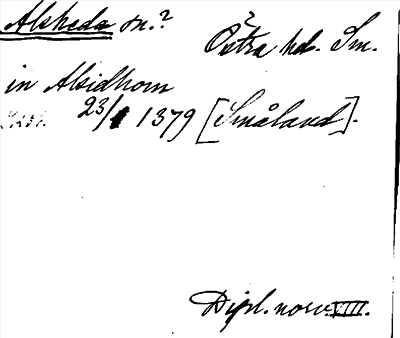 Alsheda sn.?
Östra hd. Sm.
in Alsidhom
23/1 1379 [Småland].
Dipl. norv. VIII.